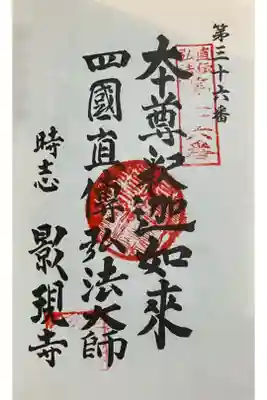 第三十六番
本尊釈迦如來
四國直傳弘法大師
時志
影現寺